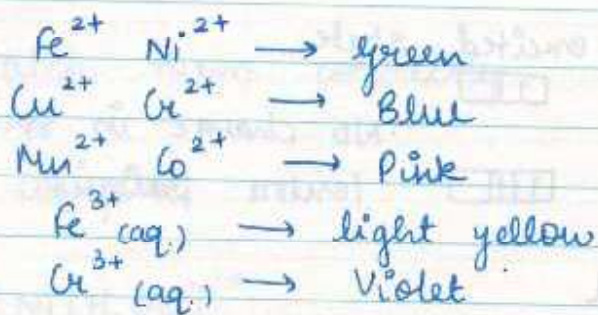 Fe²⁺ Ni²⁺ → green
Cu²⁺ Cr²⁺ → Blue
Mn²⁺ Co²⁺ → Pink
Fe³⁺ (aq.) → light yellow
Cr³⁺ (aq.) → Violet